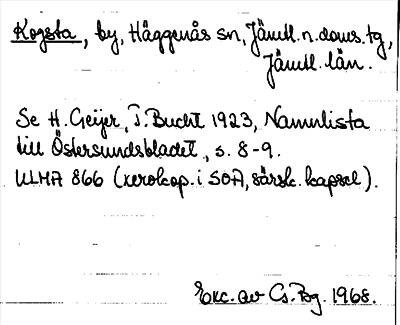 Kogsta, by, Häggenås sn, Jämtl. n. doms. tg,
Jämtl. län.
Se H. Geijer, T. Bucht 1923, Namnlista
till Östersundsbladet, s. 8-9.
ULMA 866 (xerokop. i SOA, särsk. kapsel).
Exc. av Cs. Bg. 1968.